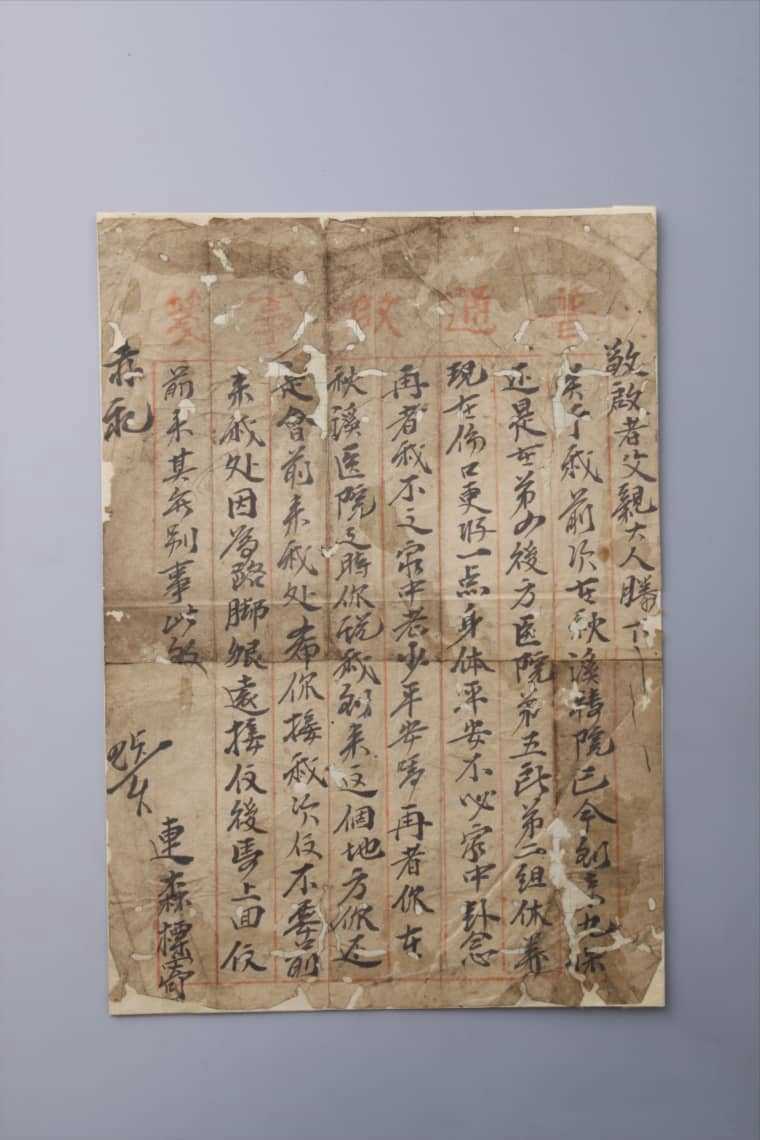 普通啟事箋
敬啟者父親大人膝下
关于我前次在秋溪醫院已今到
还是在第四後方医院第五所第二组休养
現在傷口更好一点身体平安不必家中卦念
再者我不之家中老少平安嗎再者你在
秋溪医院之時你説我到来这個地方你还
是會前来我处希你接我次仅不要前
来我处因爲路脚艰遠接仅後馬上回仅
前来其無别事此致
連森標寄